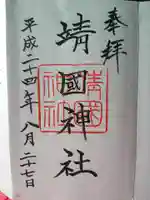 奉拝
靖國神社
平成二十四年八月二十七日
靖国神社